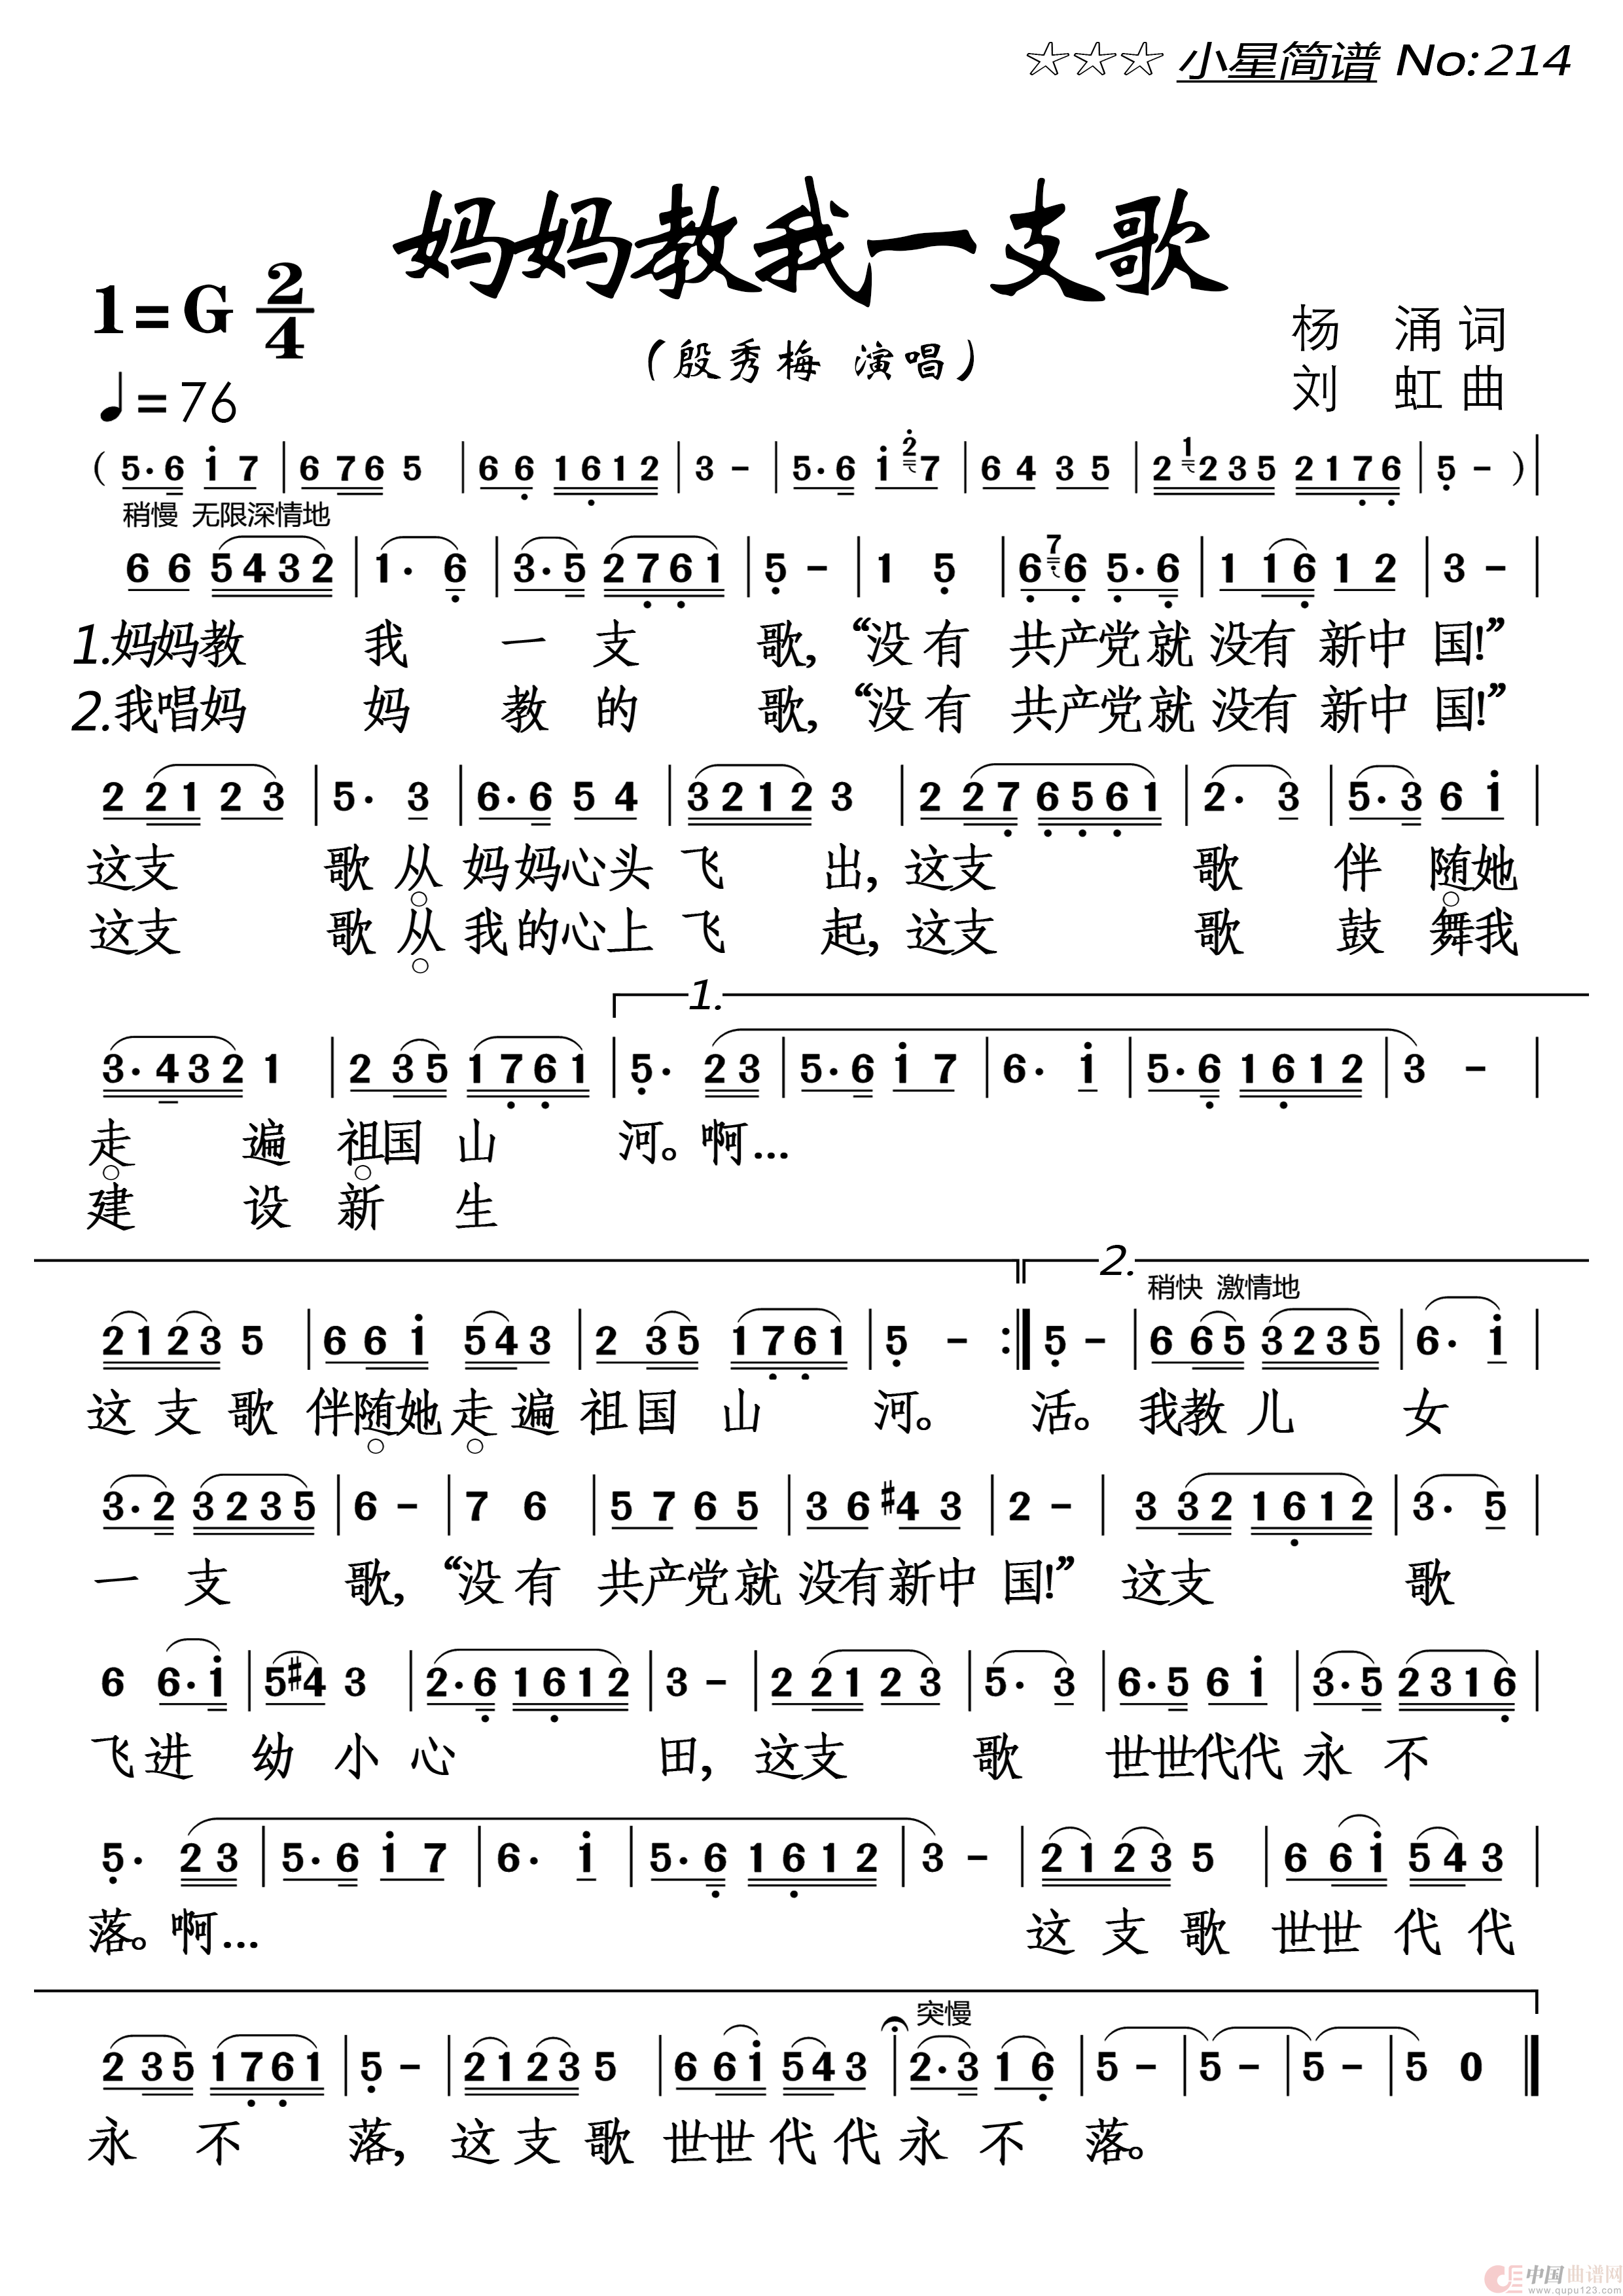 ☆☆☆ 小星简谱 No:214
妈妈教我一支歌
1=G 2/4
(殷秀梅 演唱)
杨 涌 词
♩=76
刘 虹 曲
( 5·6 i 7 | 6 7 6 5 | 6 6 1 6 1 2 | 3 - | 5·6 i 2 7 | 6 4 3 5 | 2 1 2 3 5 2 1 7 6 | 5 - ) |
稍慢 无限深情地
6 6 5 4 3 2 | 1· 6 | 3·5 2 7 6 1 | 5 - | 1 5 | 6 7 6 5·6 | 1 1 6 1 2 | 3 - |
1.妈妈教 我 一 支 歌,“没 有 共产党就 没有 新中 国!”
2.我唱妈 妈 教 的 歌,“没 有 共产党就 没有 新中 国!”
2 2 1 2 3 | 5· 3 | 6·6 5 4 | 3 2 1 2 3 | 2 2 7 6 5 6 1 | 2· 3 | 5·3 6 i |
这支 歌 从 妈妈心头 飞 出,这支 歌 伴 随她
这支 歌 从 我的心上 飞 起,这支 歌 鼓 舞我
1.
3·4 3 2 1 | 2 3 5 1 7 6 1 | 5· 2 3 | 5·6 i 7 | 6· i | 5·6 1 6 1 2 | 3 - |
走 遍 祖国 山 河。啊…
建 设 新 生
2.
稍快 激情地
2 1 2 3 5 | 6 6 i 5 4 3 | 2 3 5 1 7 6 1 | 5 - :| 5 - | 6 6 5 3 2 3 5 | 6· i |
这 支 歌 伴随她 走 遍 祖 国 山 河。 活。 我教 儿 女
3·2 3 2 3 5 | 6 - | 7 6 | 5 7 6 5 | 3 6 #4 3 | 2 - | 3 3 2 1 6 1 2 | 3· 5 |
一 支 歌,“没 有 共产党就 没有新中 国!” 这支 歌
6 6·i | 5 #4 3 | 2·6 1 6 1 2 | 3 - | 2 2 1 2 3 | 5· 3 | 6·5 6 i | 3·5 2 3 1 6 |
飞 进 幼 小 心 田,这支 歌 世世代代 永 不
5· 2 3 | 5·6 i 7 | 6· i | 5·6 1 6 1 2 | 3 - | 2 1 2 3 5 | 6 6 i 5 4 3
落。啊… 这 支 歌 世世 代 代
突慢
2 3 5 1 7 6 1 | 5 - | 2 1 2 3 5 | 6 6 i 5 4 3 | 2·3 1 6 | 5 - | 5 - | 5 - | 5 0 ‖
永 不 落,这 支 歌 世世 代 代 永 不 落。
中国曲谱网
www.qupu123.com